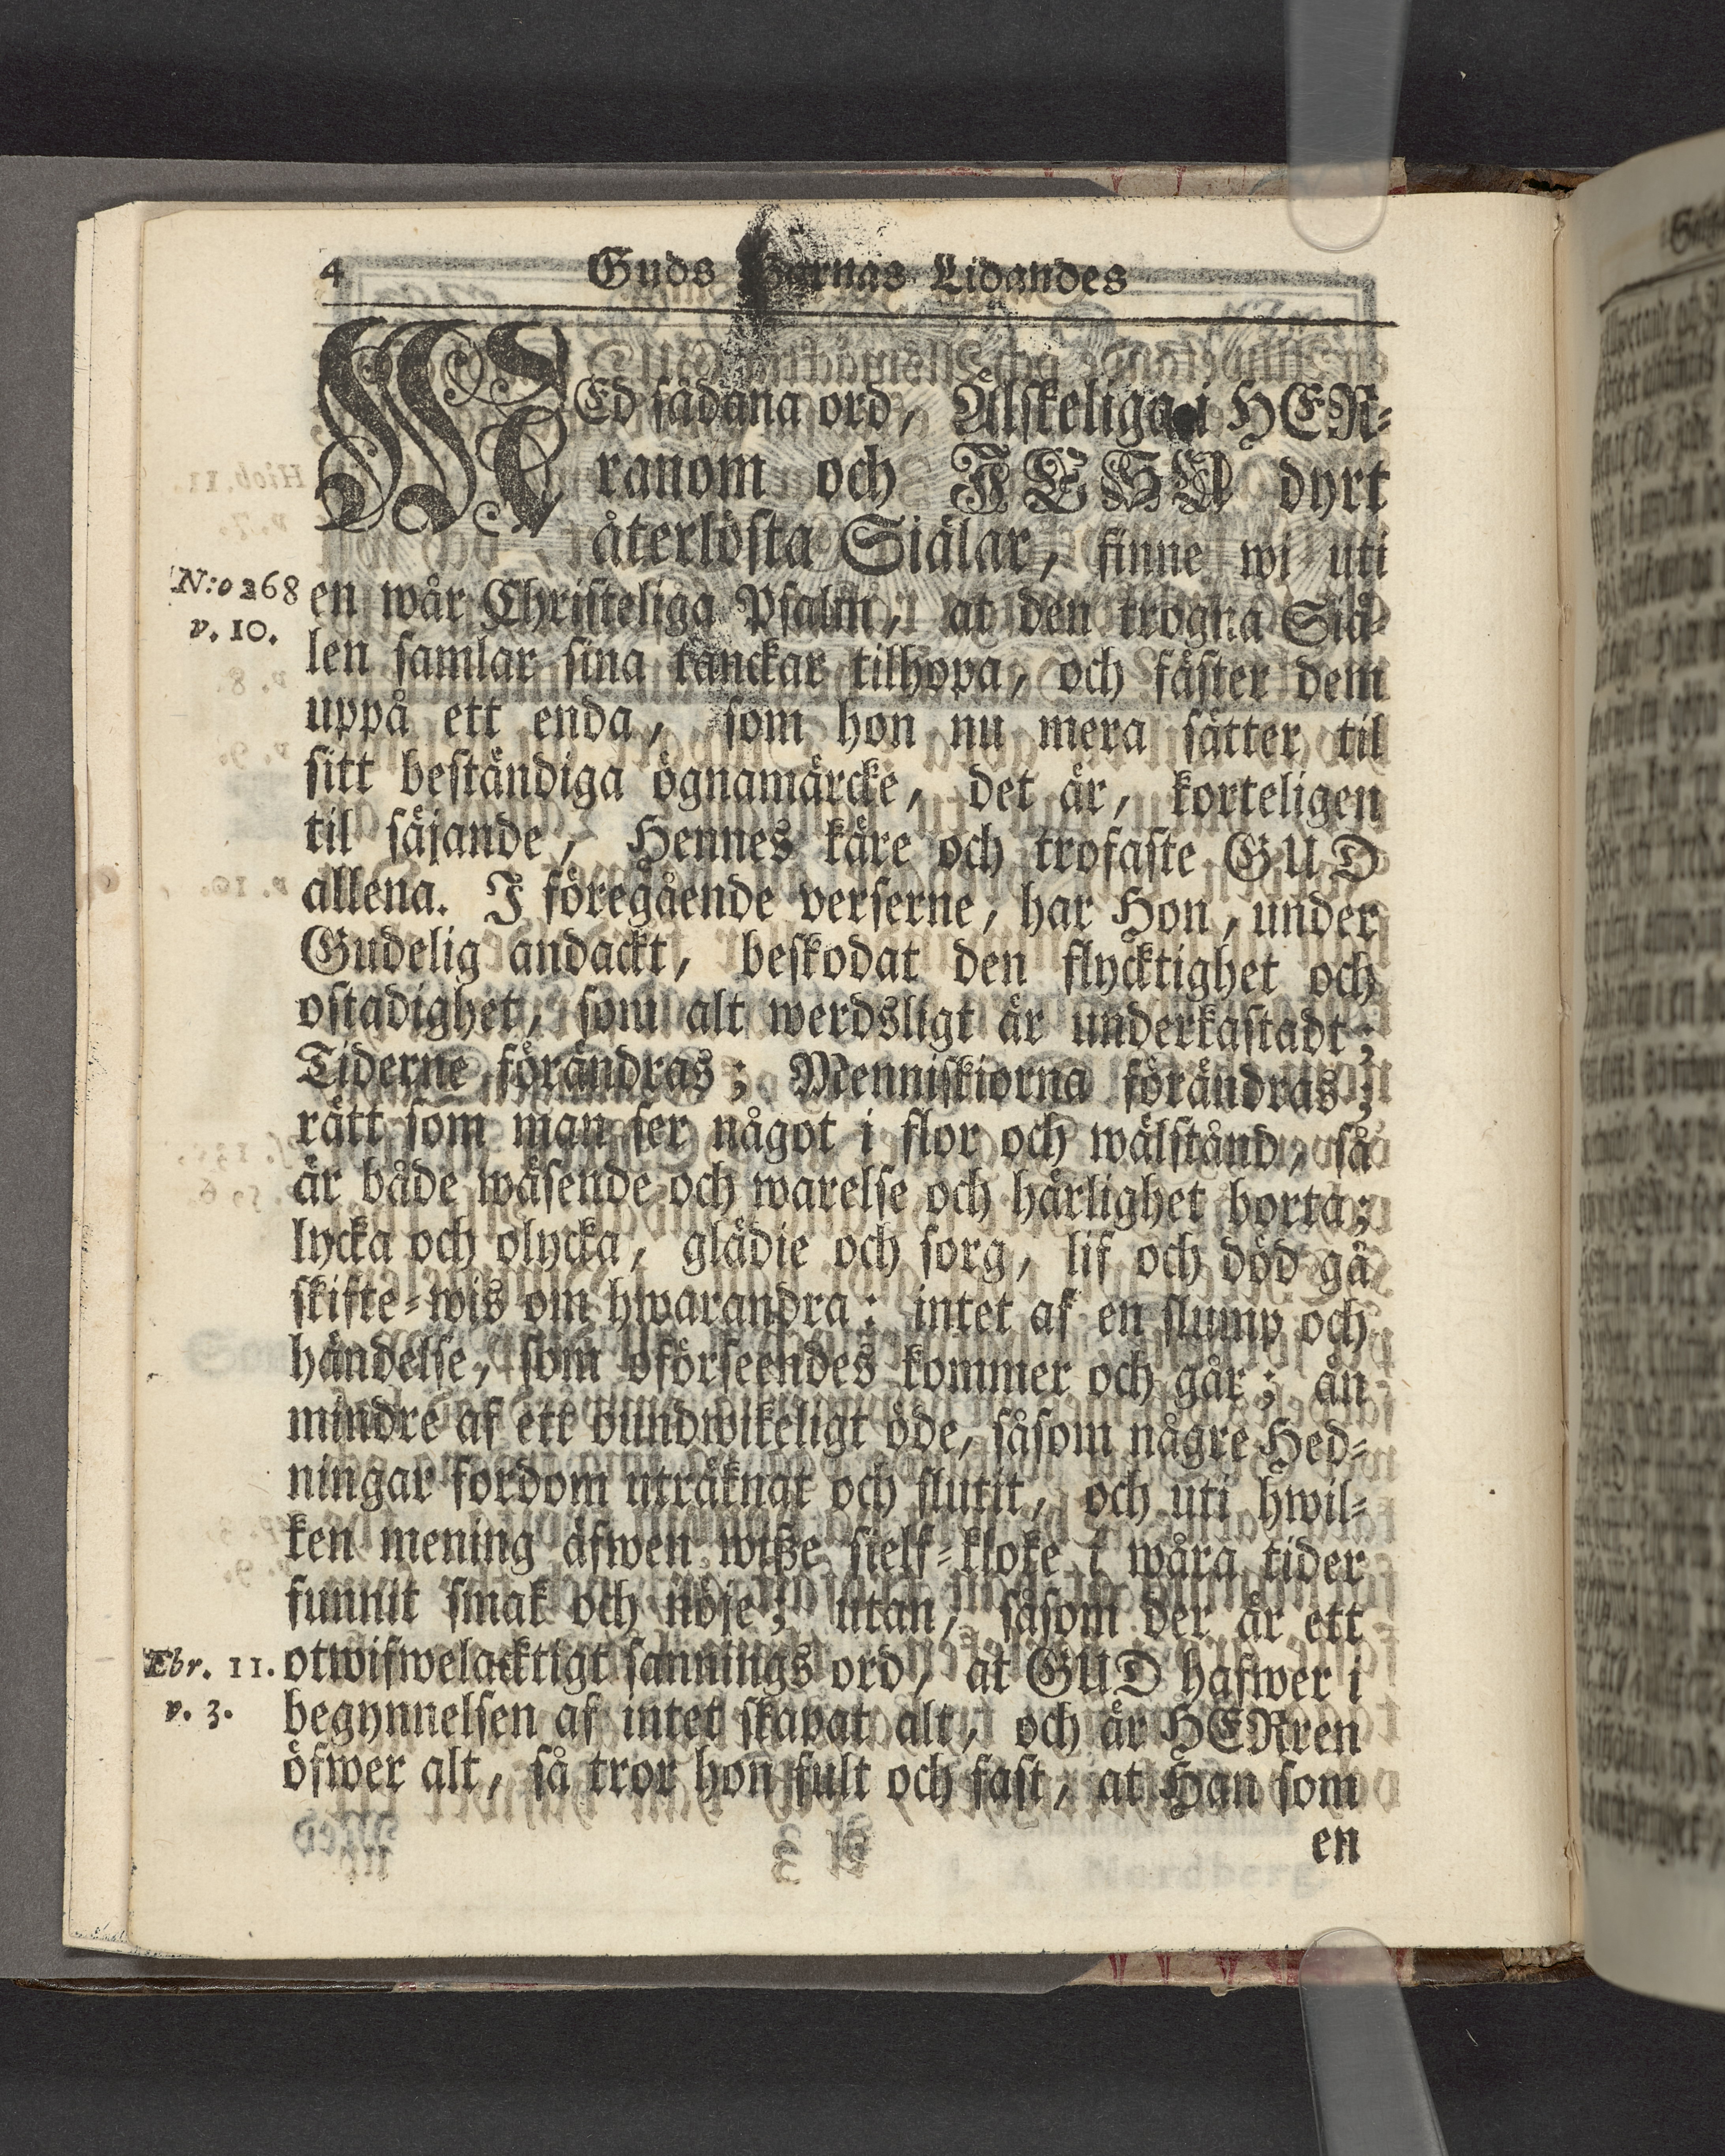 4 Guds Barnas Lidandes
MEd sådana ord, Älskeliga i HER-
ranom och JESU dyrt
återlösta Siälar, finne wj uti
N:o 268 en wår Christeliga Psalm, at den trogna Siä-
v. 10. len samlar sina tanckar tilhopa, och fäster dem
uppå ett enda, som hon nu mera sätter til
sitt beständiga ögnamärcke, det är, korteligen
til säjande, Hennes käre och trofaste GUD
allena. I föregående verserne, har Hon, under
Gudelig andackt, beskodat den flycktighet och
ostadighet, som alt werdsligt är underkastadt;
Tiderne förändras; Menniskiorna förändras;
rätt som man ser något i flor och wälstånd, så
är både wäsende och warelse och härlighet borta;
lycka och olycka, glädie och sorg, lif och död gå
skifte-wis om hwarandra: intet af en slump och
händelse, som oförseendes kommer och går; än
mindre af ett oundwikeligt öde, såsom någre Hed-
ningar fordom uträknat och slutit, och uti hwil-
ken mening äfwen wiße sielf-kloke i wåra tider
funnit smak och nöje; utan, såsom der är ett
Ebr. 11. otwifwelacktigt sannings ord, at GUD hafwer i
v. 3. begynnelsen af intet skapat alt, och är HERren
öfwer alt, så tror hon fult och fast, at Han som
en